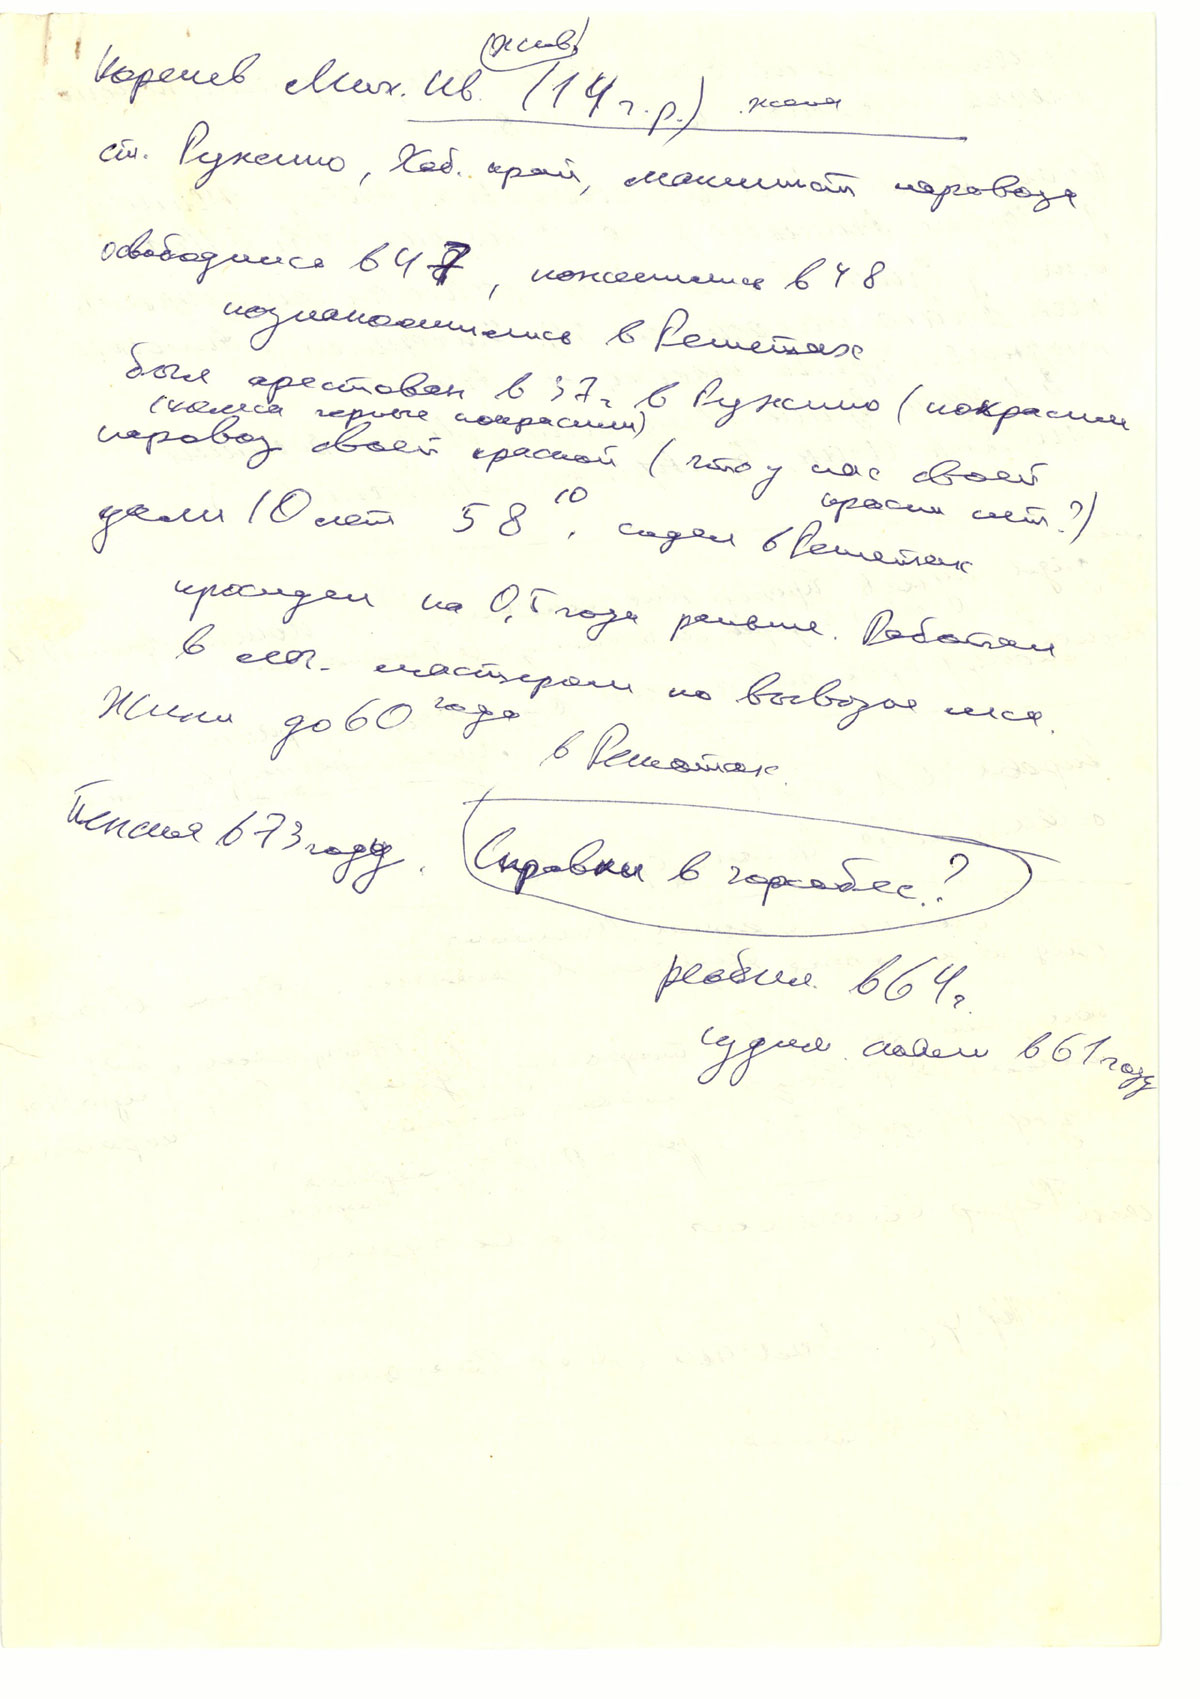 (жив)
Коренев Мих. Ив. (14 г.р.) жена
ст. Ружино, Хаб. край, машинист паровоза
освободился в 47, поженились в 48
познакомились в Решетах
был арестован в 37 г. в Ружино (покрасили
(колеса черные покрасили)
паровоз своей краской (что у нас своей
краски нет?)
дали 10 лет 58 10, сидел в Решетах
просидел на 0,5 года раньше. Работал
в мастером по вывозке леса.
Жили до 60 года
в Решотах.
Пенсия в 73 году. Справки в горсобес?
реабил. в 64 г.
судим. сняли в 61 году